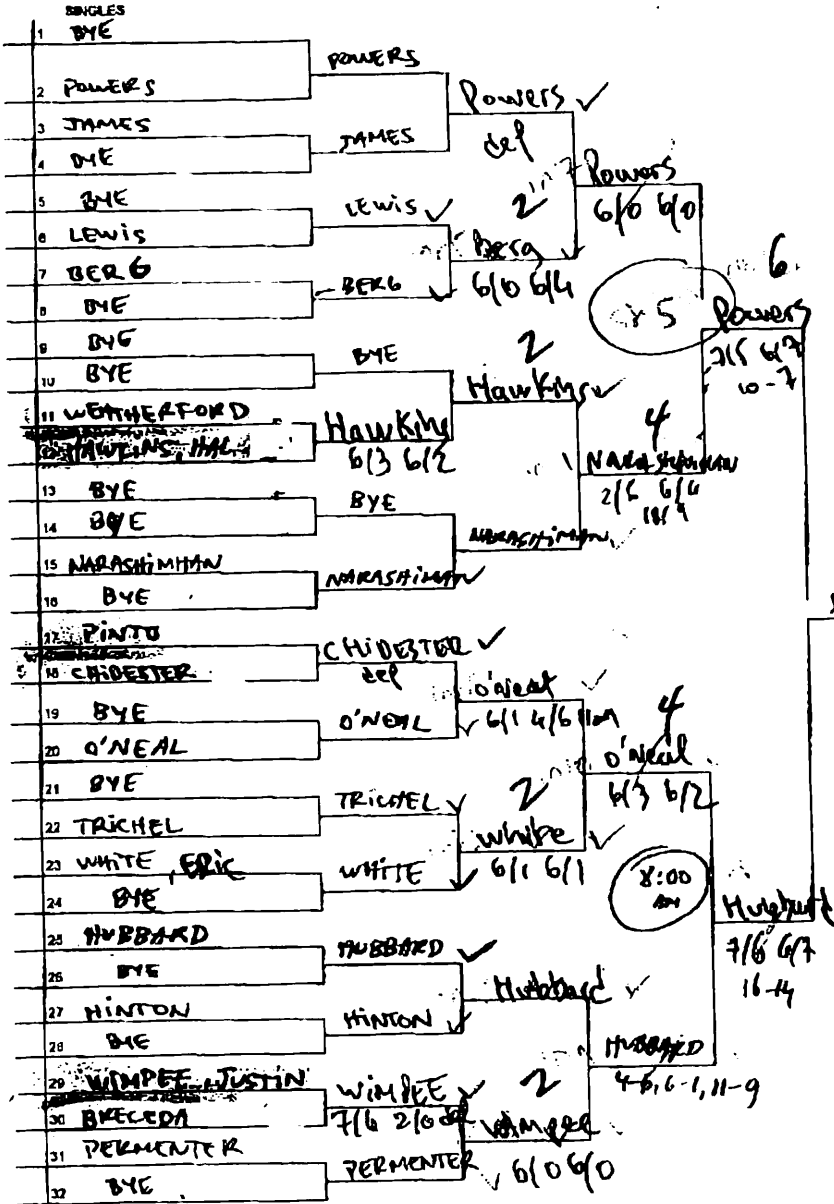 SINGLES
1 BYE
2 POWERS
3 JAMES
4 BYE
5 BYE
6 LEWIS
7 BERG
8 BYE
9 BYE
10 BYE
11 WEATHERFORD
HAWKINS, HAL
13 BYE
14 BYE
15 NARASHIMHAN
16 BYE
17 PINTO
18 CHIDESTER
19 BYE
20 O'NEAL
21 BYE
22 TRICHEL
23 WHITE, ERIC
24 BYE
25 HUBBARD
26 BYE
27 HINTON
28 BYE
29 WIMPEE, JUSTIN
30 BRECEDA
31 PERMENTER
32 BYE
POWERS
JAMES
LEWIS
BERG
BYE
Hawkins
6/3 6/2
BYE
NARASHIMAN
CHIDESTER
def
O'NEAL
TRICHEL
WHITE
HUBBARD
HINTON
WIMPEE
7/6 2/0 def
PERMENTER
Powers
def
2
Berg
6/0 6/4
2
Hawkins
NARASHIMAN
O'Neal
6/1 4/6
2
White
6/1 6/1
Hubbard
2
Wimpee
6/0 6/0
Powers
6/0 6/0
5
4
NARASHIMAN
2/6 6/4
4
O'Neal
6/3 6/2
8:00
AM
HUBBARD
4-6, 6-1, 11-9
6
Powers
7/5 6/7
10-7
Hubbard
7/6 6/7
16-14